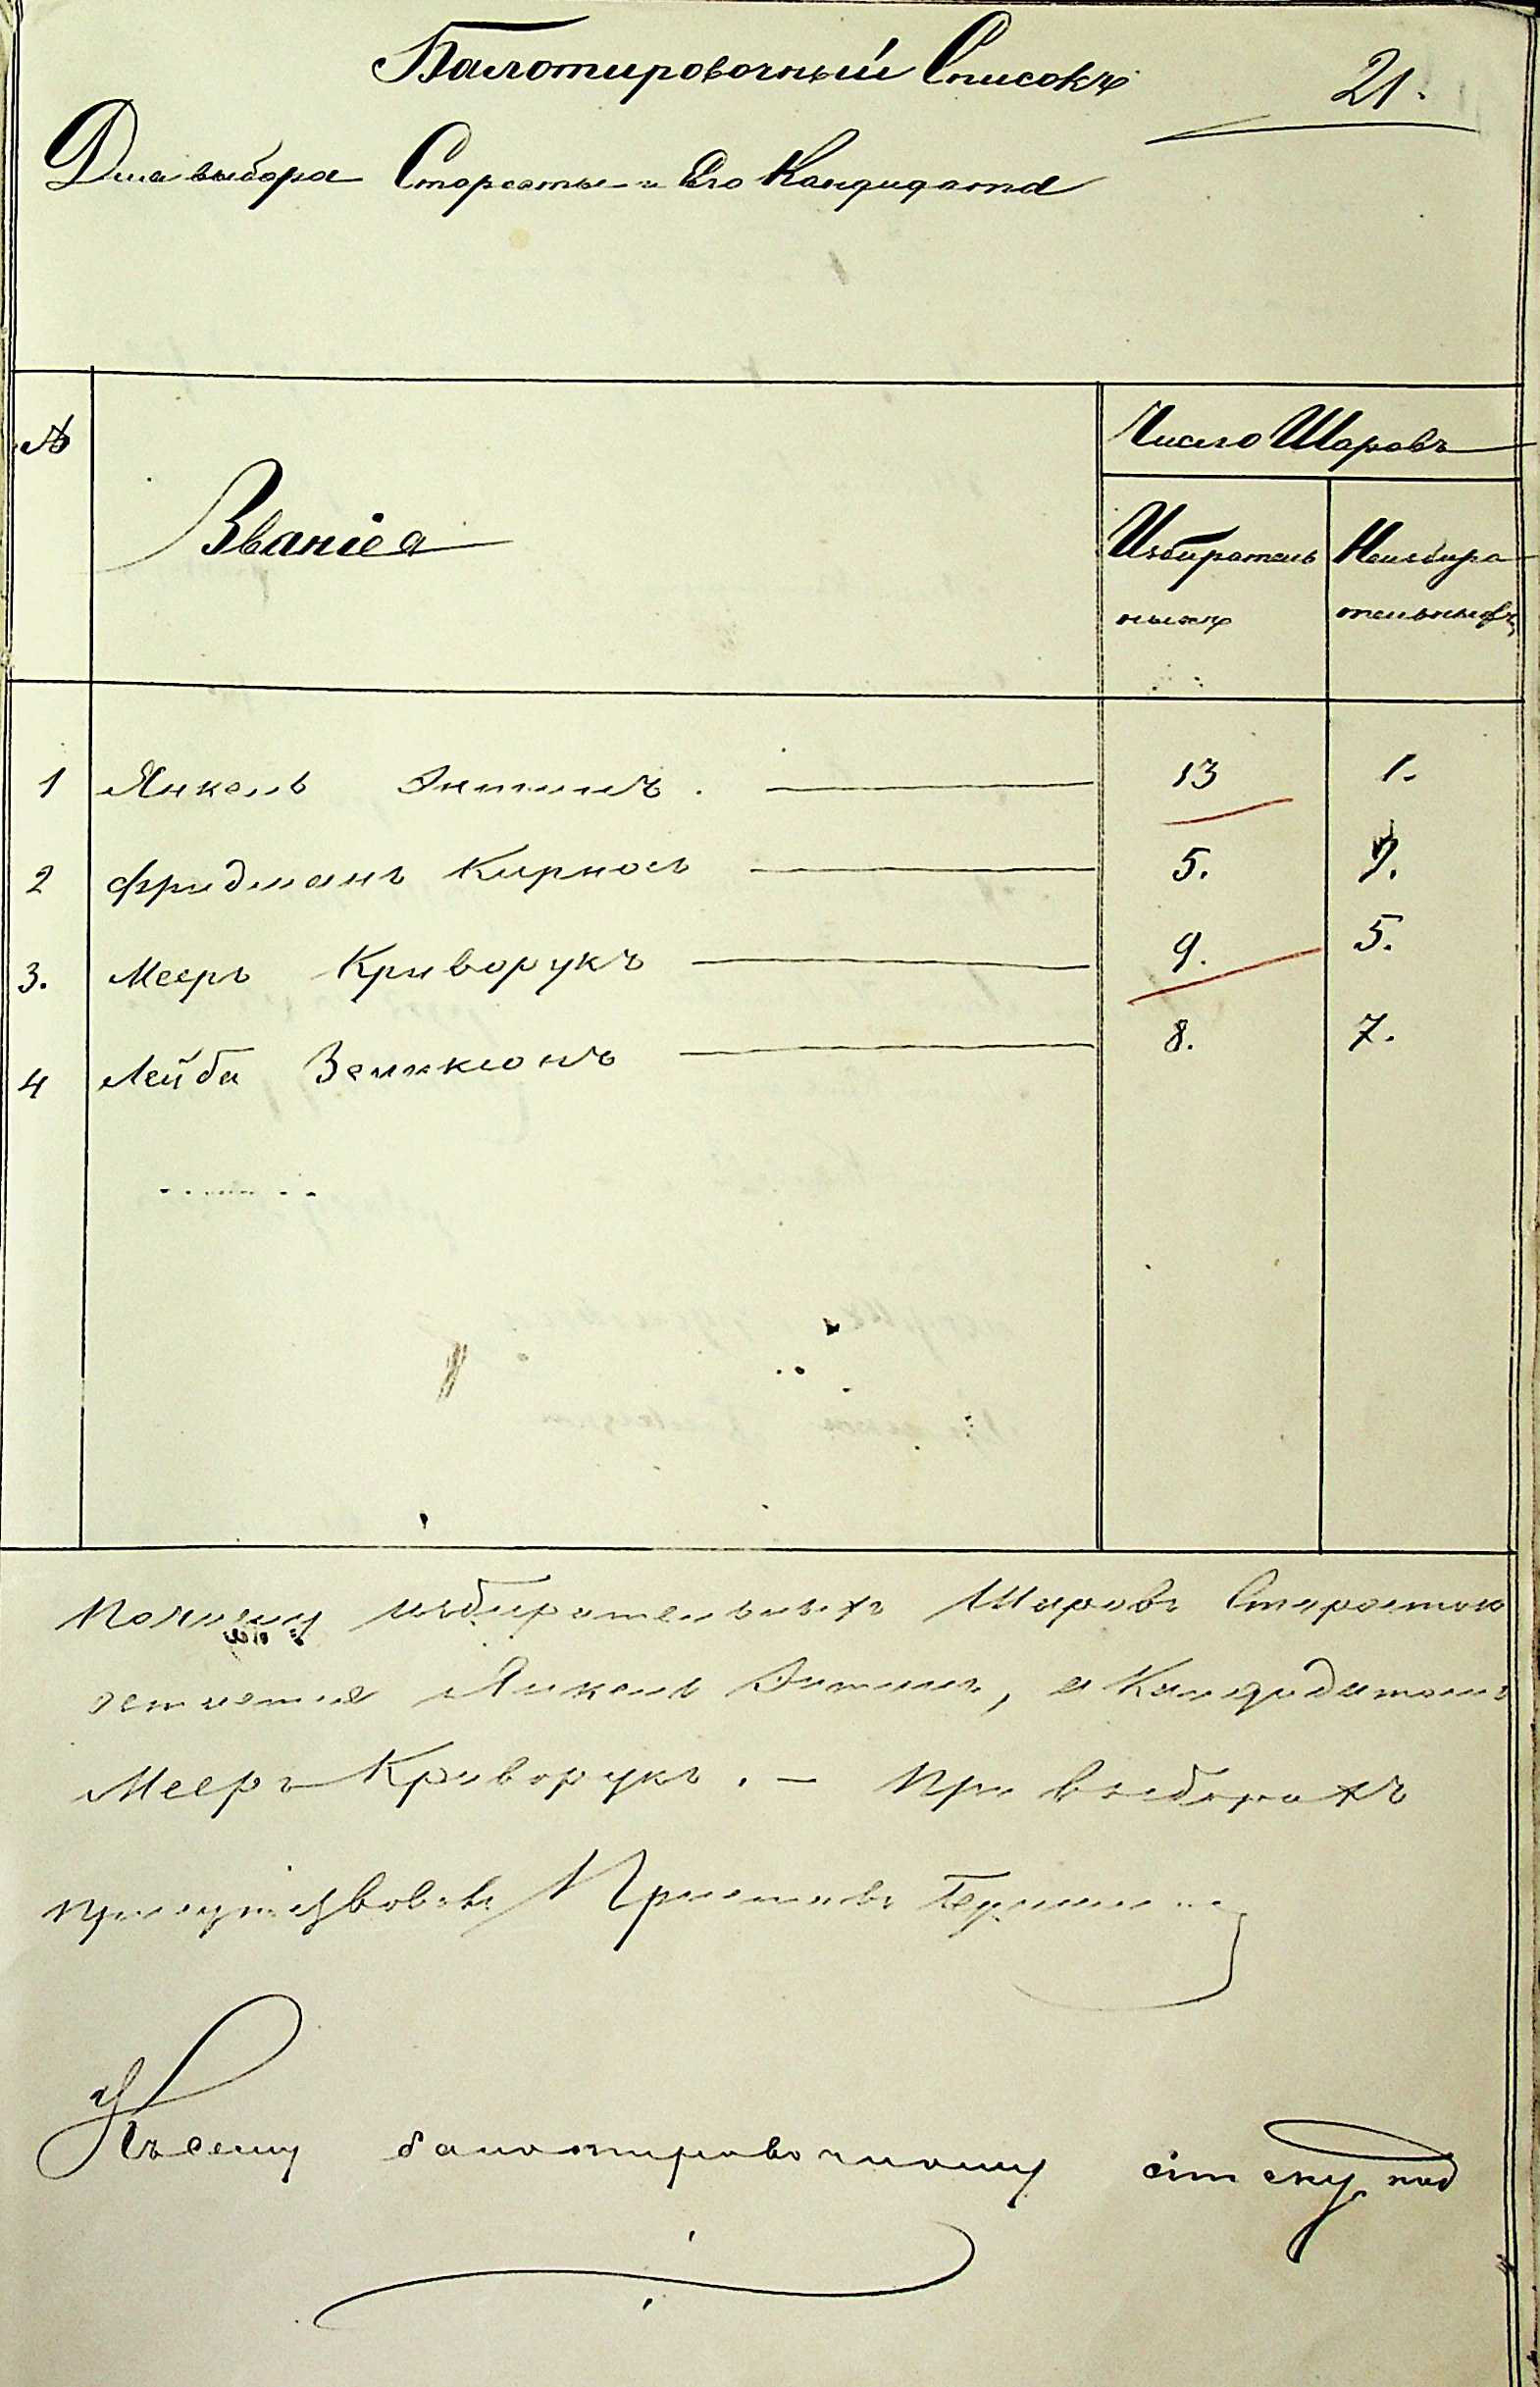 Балотировочный Списокъ
21.
Для выбора Старосты и Его Кандидата
№
Званіе
Число Шаровъ
Избиратель
ныхъ
Неизбира
тельныхъ
1 Янкель Энтинъ. 13 1.
2 Фридманъ Кирносъ 5. 9.
3. Мееръ Криворукъ 9. 5.
4 Лейба Земиклонъ 8. 7.
По числу избирательныхъ Шаровъ Старостою
остается Янкель Энтинъ, а Кандидатомъ
Мееръ Криворукъ. — При выборахъ
присутствовалъ Приставъ
Къ сему балотировочному списку под